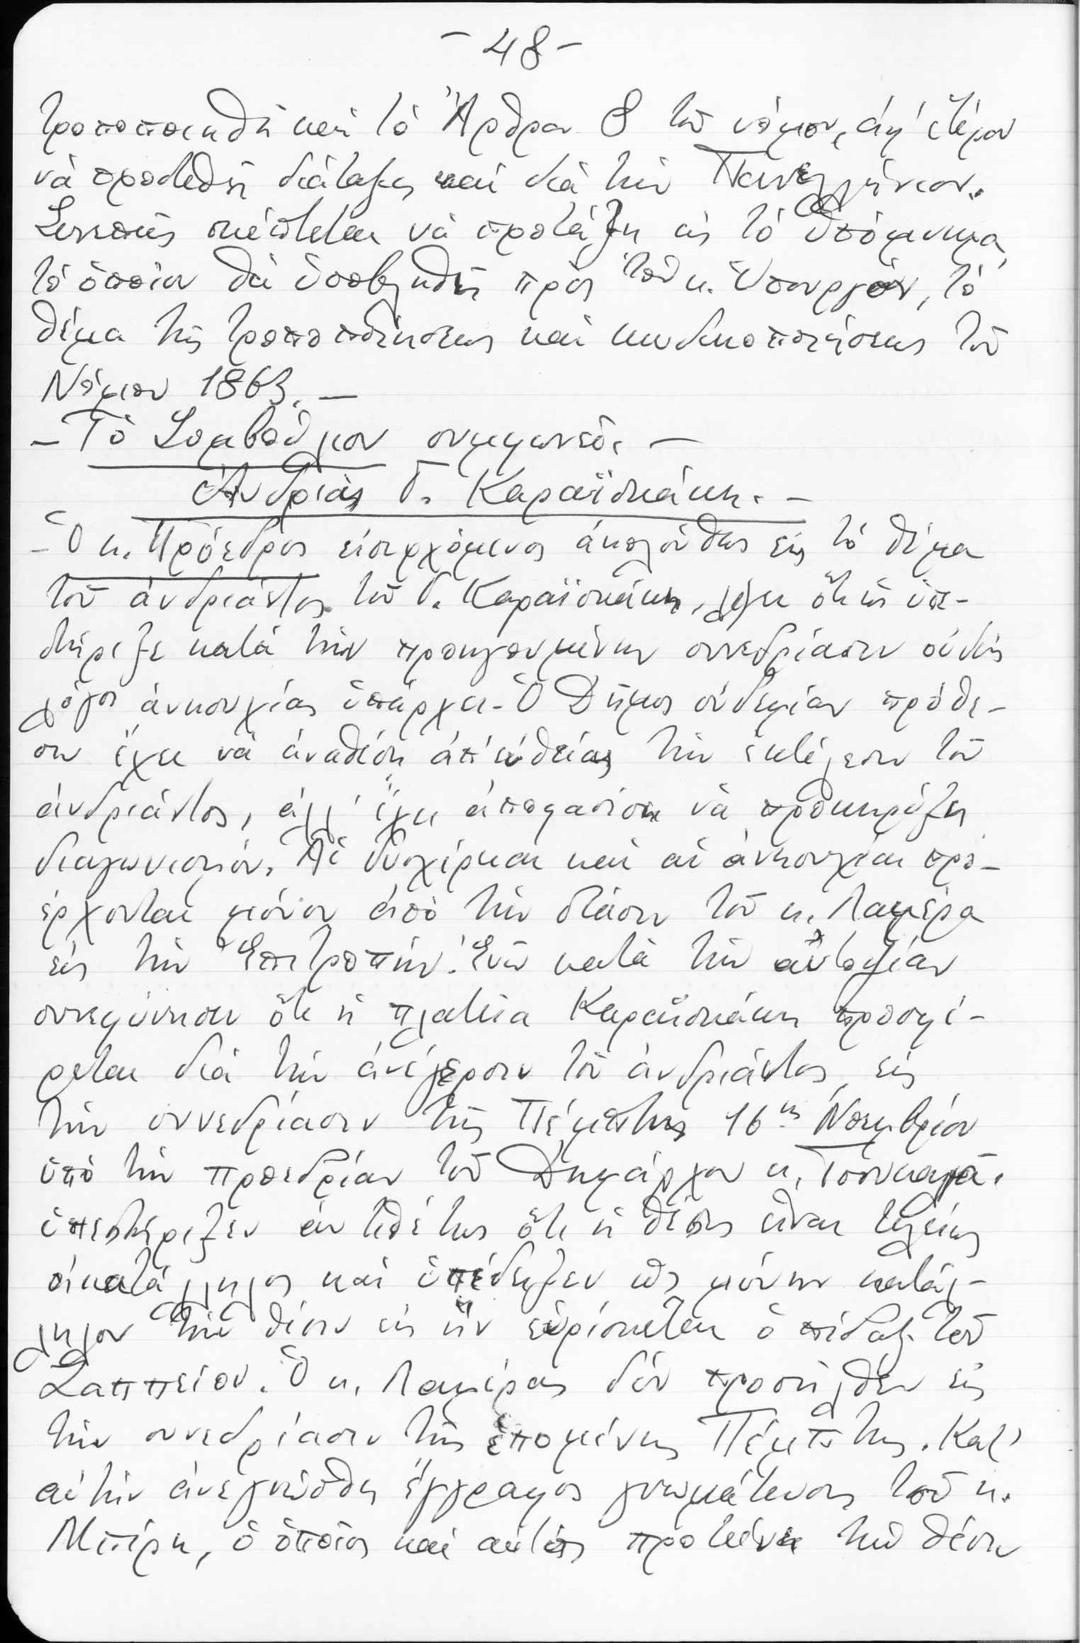 - 48 -
τροποποιηθῆ καὶ τὸ Ἄρθρον 8 τοῦ νόμου, ἀφ' ἑτέρου
νὰ προστεθῇ διάταξις καὶ διὰ τὴν Πανελλήνιον.
Συνεπῶς σκέπτεται νὰ προτάξῃ εἰς τὸ ὑπόμνημα
τὸ ὁποῖον θὰ ὑποβληθῇ πρὸς τὸν κ. Ὑπουργόν, τὸ
θέμα τῆς τροποποιήσεως καὶ κωδικοποιήσεως τοῦ
Νόμου 1863. -
- Τὸ Συμβούλιον συμφωνεῖ. -
Ἀνδριὰς Γ. Καραϊσκάκη. -
- Ὁ κ. Πρόεδρος εἰσερχόμενος ἀκολούθως εἰς τὸ θέμα
τοῦ ἀνδριάντος τοῦ Γ. Καραϊσκάκη, λέγει ὅτι ὡς ὑπε-
στήριξε κατὰ τὴν προηγουμένην συνεδρίασιν οὐδεὶς
λόγος ἀνησυχίας ὑπάρχει. Ὁ Δῆμος οὐδεμίαν πρόθε-
σιν ἔχει νὰ ἀναθέσῃ ἀπ' εὐθείας τὴν ἐκτέλεσιν τοῦ
ἀνδριάντος, ἀλλ' ἔχει ἀποφασίσει νὰ προκηρύξῃ
διαγωνισμόν. Αἱ δυσχέρειαι καὶ αἱ ἀνησυχίαι προ-
έρχονται μόνον ἀπὸ τὴν στάσιν τοῦ κ. Λαμέρα
εἰς τὴν Ἐπιτροπήν. Ἐνῶ κατὰ τὴν αὐτοψίαν
συνεφώνησεν ὅτι ἡ πλατεῖα Καραϊσκάκη προσφέ-
ρεται διὰ τὴν ἀνέγερσιν τοῦ ἀνδριάντος, εἰς
τὴν συνεδρίασιν τῆς Πέμπτης 16ης Νοεμβρίου
ὑπὸ τὴν προεδρίαν τοῦ Δημάρχου κ. Τσουκαλᾶ.
ὑπεστήριξεν ἀντιθέτως ὅτι ἡ θέσις εἶναι τελείως
ἀκατάλληλος καὶ ὑπέδειξεν ὡς μόνην κατάλ-
ληλον τὴν θέσιν εἰς ἣν εὑρίσκεται ὁ πίδαξ τοῦ
Ζαππείου. Ὁ κ. Λαμέρας δὲν προσῆλθεν εἰς
τὴν συνεδρίασιν τῆς ἑπομένης Πέμπτης. Κατ'
αὐτὴν ἀνεγνώσθη ἔγγραφος γνωμάτευσις τοῦ κ.
Μπίρη, ὁ ὁποῖος καὶ αὐτὸς προτείνει τὴν θέσιν